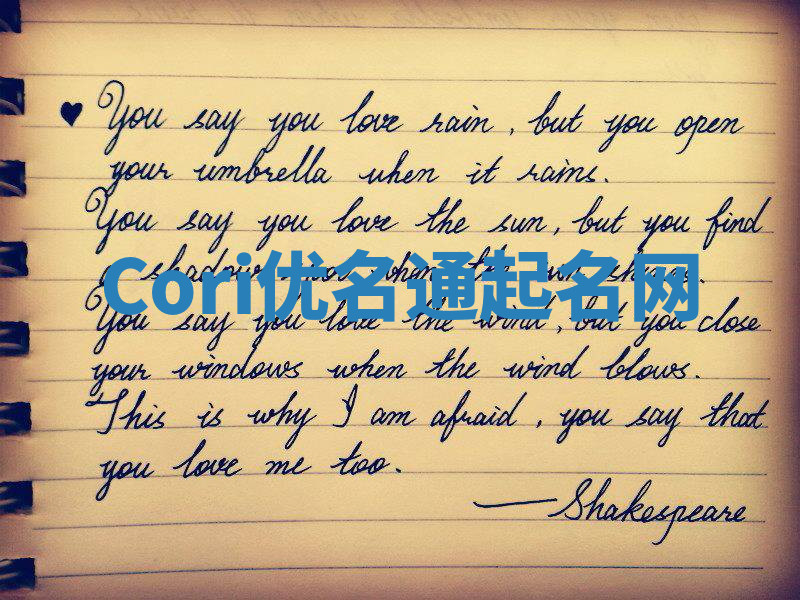 ♥ You say you love rain, but you open
your umbrella when it rains.
You say you love the sun, but you find
a shadow when the sun shines.
Cori优名通起名网
You say you love the wind, but you close
your windows when the wind blows.
This is why I am afraid, you say that
you love me too.
—Shakespeare